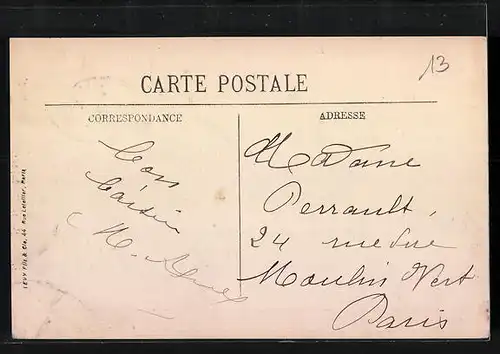 13
CARTE POSTALE
CORRESPONDANCE
ADRESSE
LEVY FILS & Cie, 44 Rue Letellier, Paris
Bons
Baisers
Madame
Perrault,
24 rue du
Moulin Vert
Paris